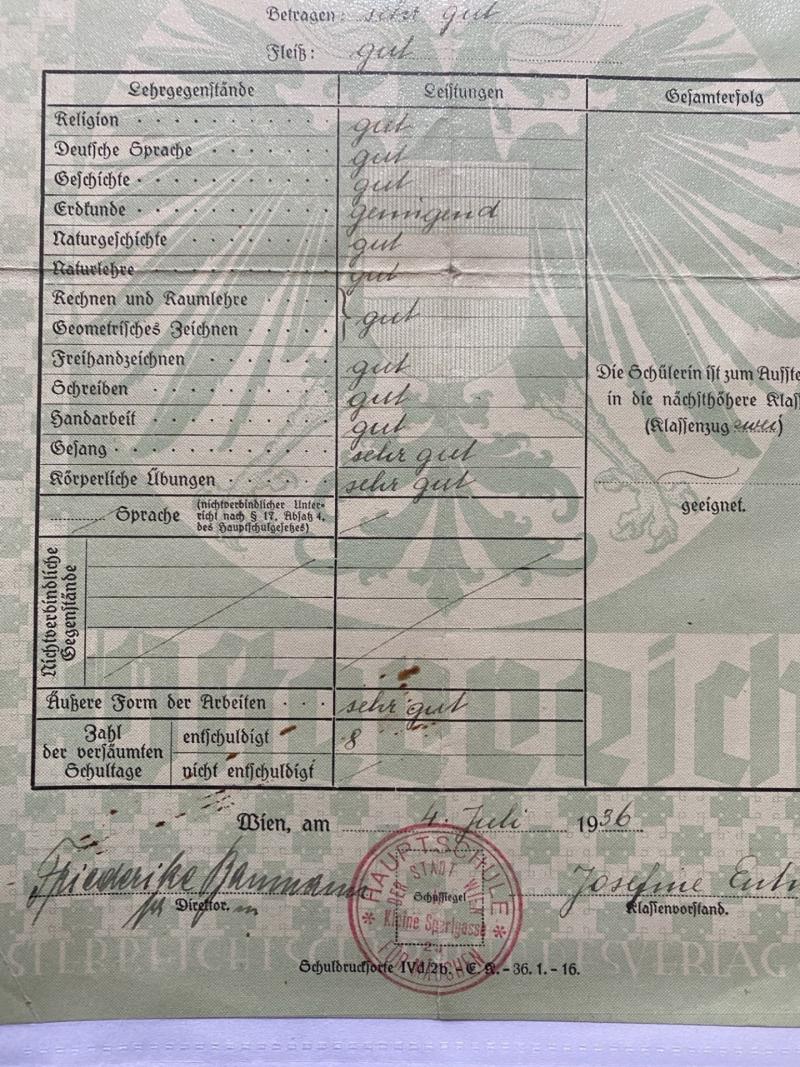 Betragen: sehr gut
Fleiß: gut
Lehrgegenstände Leistungen Gesamterfolg
Religion gut
Deutsche Sprache gut
Geschichte gut
Erdkunde genügend
Naturgeschichte gut
Naturlehre gut
Rechnen und Raumlehre
Geometrisches Zeichnen gut
Freihandzeichnen gut
Schreiben gut
Handarbeit gut
Gesang sehr gut
Körperliche Übungen sehr gut
Die Schülerin ist zum Aufste
in die nächsthöhere Klas
(Klassenzug zwei)
geeignet.
Sprache (nichtverbindlicher Unter-
richt nach § 17, Absatz 4,
des Hauptschulgesetzes)
Nichtverbindliche
Gegenstände
Österreich
Äußere Form der Arbeiten sehr gut
Zahl
der versäumten
Schultage
entschuldigt 8
nicht entschuldigt
Wien, am 4. Juli 1936
Friederike Baumann
Direktor.in
Josefine
Klassenvorstand.
HAUPTSCHULE
DER STADT WIEN
Schulsiegel
Kleine Sperlgasse
FÜR MÄDCHEN
Schuldrucksorte IVd/2b. - E. A. - 36. 1. - 16.